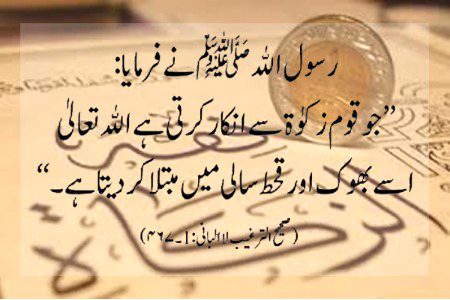 رسول اللہ ﷺ نے فرمایا:
”جو قوم زکوٰۃ سے انکار کرتی ہے اللہ تعالیٰ
اسے بھوک اور قحط سالی میں مبتلا کر دیتا ہے۔“
(صحیح الترغیب للالبانی:1۔۴۶۷)